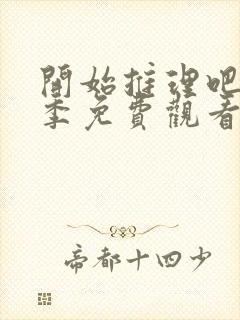 開始推理吧
季免費觀看
帝都十四少